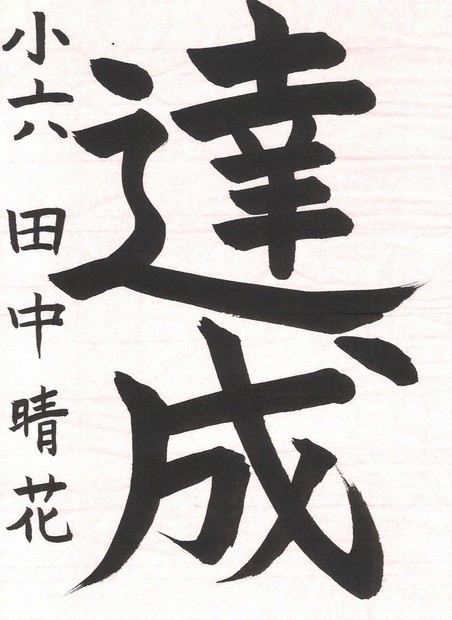 達成
小六 田中晴花